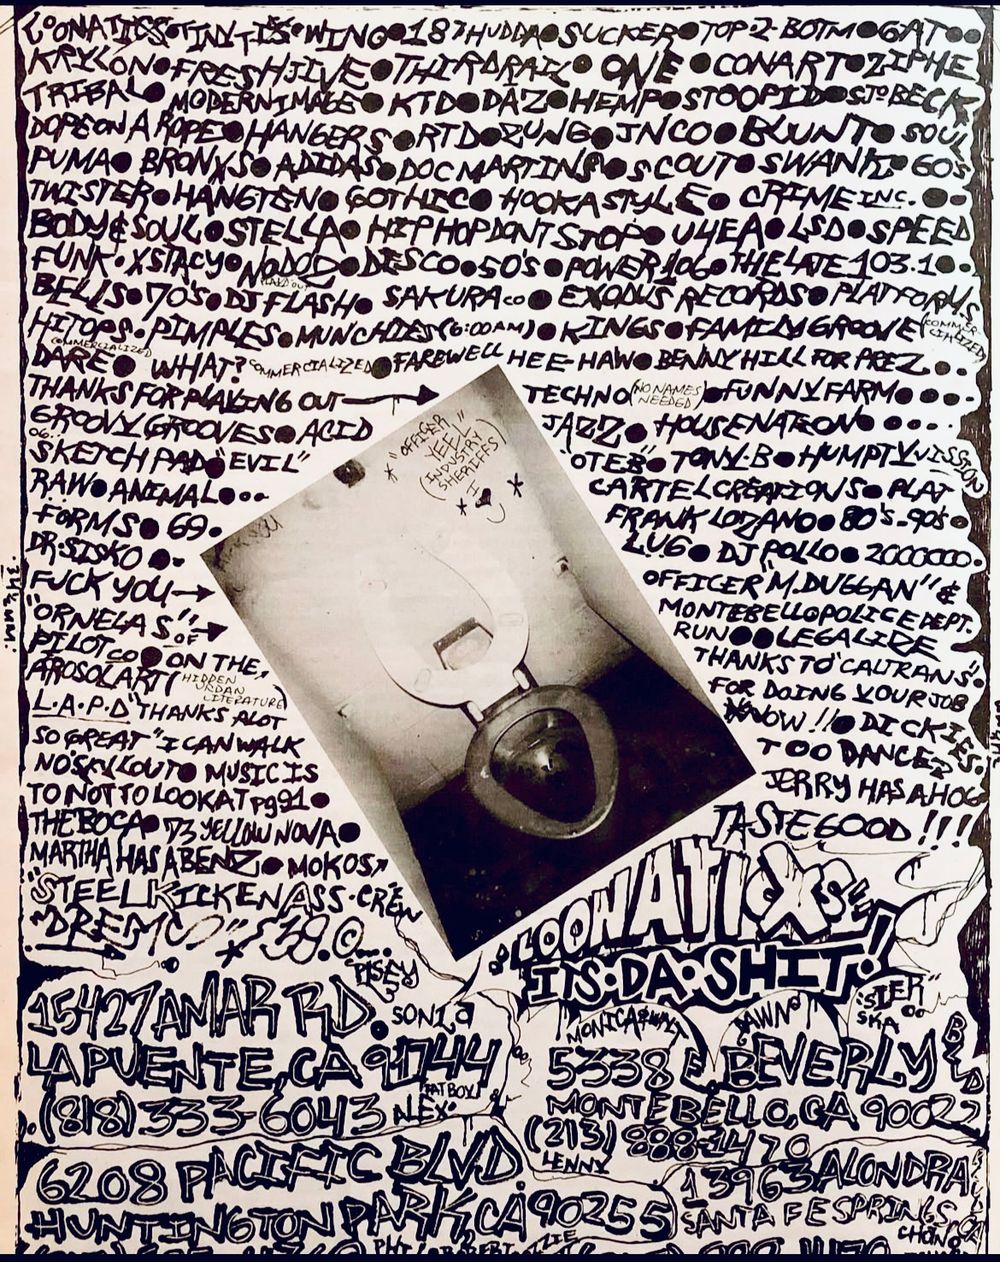 LOONATICS • TINY TIX • WING • 187 HUDDA • SUCKER • TOP-2-BOTM • GAT • •
KRYLON • FRESHJIVE • THIRDRAIL • ONE • CONART • ZIPHE
TRIBAL • MODERN IMAGE • KTD • DAZ • HEMP • STOOPID • STO BECK
DOPE ON A ROPE • HANGERS • RTD • ZUNG • JNCO • BLUNT • SOUL
PUMA • BRONXS • ADIDAS • DOC MARTINS • SCOUT • SWANK • 60'S
TWISTER • HANGTEN • GOTHIC • HOOKASTYLE • CRIME INC. • •
BODY & SOUL • STELLA • HIP HOP DONT STOP • U4EA • LSD • SPEED
FUNK • XSTACY • NODOZ • DESCO • 50'S • POWER 106 • THE LATE 103.1 • •
PLAYD OUT
BELLS • 70'S • DJ FLASH • SAKURA CO • EXODUS RECORDS • PLATFORMS
HITOPS • PIMPLES • MUNCHIES (6:00AM) • KINGS • FAMILY GROOVE (COMMERCIALIZED)
COMMERCIALIZED
DARE • WHAT? COMMERCIALIZED • FAREWELL HEE-HAW • BENNY HILL FOR PREZ . . .
THANKS FOR PLAYING OUT → TECHNO (NO NAMES NEEDED) • FUNNY FARM • • • •
GROOVY GROOVES • ACID
JAZZ • HOUSE NATION • • • •
SKETCH PAD "EVIL"
"OTEB" • TONY-B • HUMPTY VISSION
RAW • ANIMAL • • •
CARTEL CREATIONS • PLAT
FORMS • 69 •
FRANK LOZANO • 80's-90's •
DR SISKO • •
LUG • DJ POLLO • 2000000 •
FUCK YOU →
OFFICER "M. DUGGAN" &
"ORNELAS" OF →
MONTEBELLO POLICE DEPT.
PILOT CO • ON THE,
RUN • • LEGALIZE
AROSOL ART (HIDDEN URBAN LITERATURE)
THANKS TO "CALTRANS"
L.A.P.D "THANKS ALOT
FOR DOING YOUR JOB
SO GREAT "I CAN WALK
NOW !! • DICKIES.
TOO DANCE?
NO SELLOUT • MUSIC IS
JERRY HAS A HOG
TO NOT TO LOOK AT pg 91 •
TASTE GOOD !!!
THE BOCA • 73 YELLOW NOVA •
MARTHA HAS A BENZ • MOKOS
"STEEL KICKEN ASS • CREW
"DREMS"
"OFFICER YEEL"
(INDUSTRY SHERIFFS)
34½ MM.
LOONATICXS
ITS • DA • SHIT !
PISEY
15427 AMAR RD. SONIA
LA PUENTE, CA 91744
FATBOY
(818) 333-6043 ALEX
6208 PACIFIC BLVD.
HUNTINGTON PARK, CA 90255
MONICA & WAL DAWN "STER" SKA
5338 E. BEVERLY BLVD
MONTEBELLO, CA 90022
(213) 888-1470
LENNY
13963 ALONDRA
SANTA FE SPRINGS
CHANO